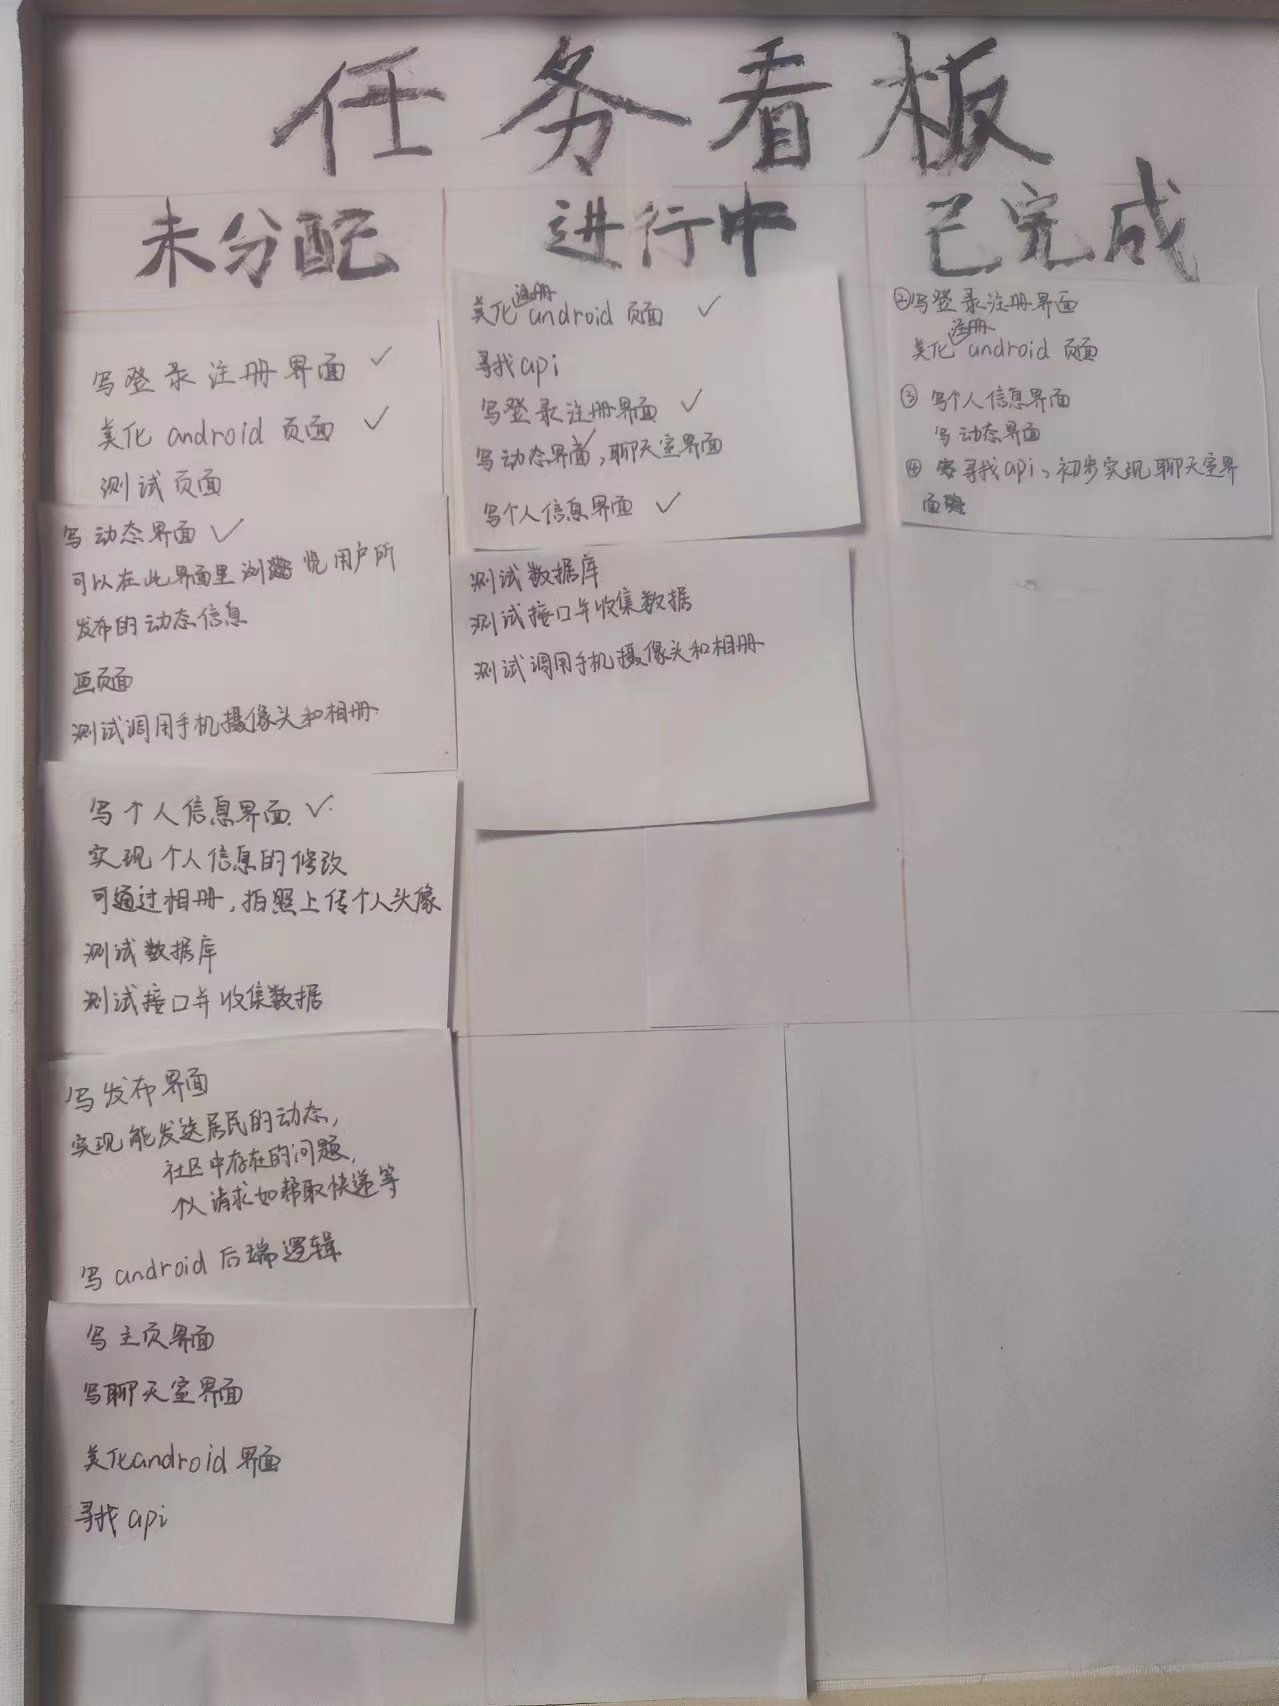 任务看板
未分配
写登录注册界面 ✓
美化 android 页面 ✓
测试页面
写动态界面 ✓
可以在此界面里浏览用户所
发布的动态信息
画页面
测试调用手机摄像头和相册.
写个人信息界面. ✓
实现个人信息的修改
可通过相册,拍照上传个人头像
测试数据库
测试接口并收集数据
写发布界面
实现能发送居民的动态,
社区中存在的问题,
个人请求如帮取快递等
写android后端逻辑
写主页界面
写聊天室界面
美化android界面
寻找api
进行中
注册
美化 android 页面 ✓
寻找api
写登录注册界面 ✓
写动态界面✓,聊天室界面
写个人信息界面 ✓
测试数据库
测试接口并收集数据
测试调用手机摄像头和相册
已完成
②写登录注册界面
注册
美化 android 页面
③ 写个人信息界面
写动态界面
④ 寻找api。初步实现聊天室界
面